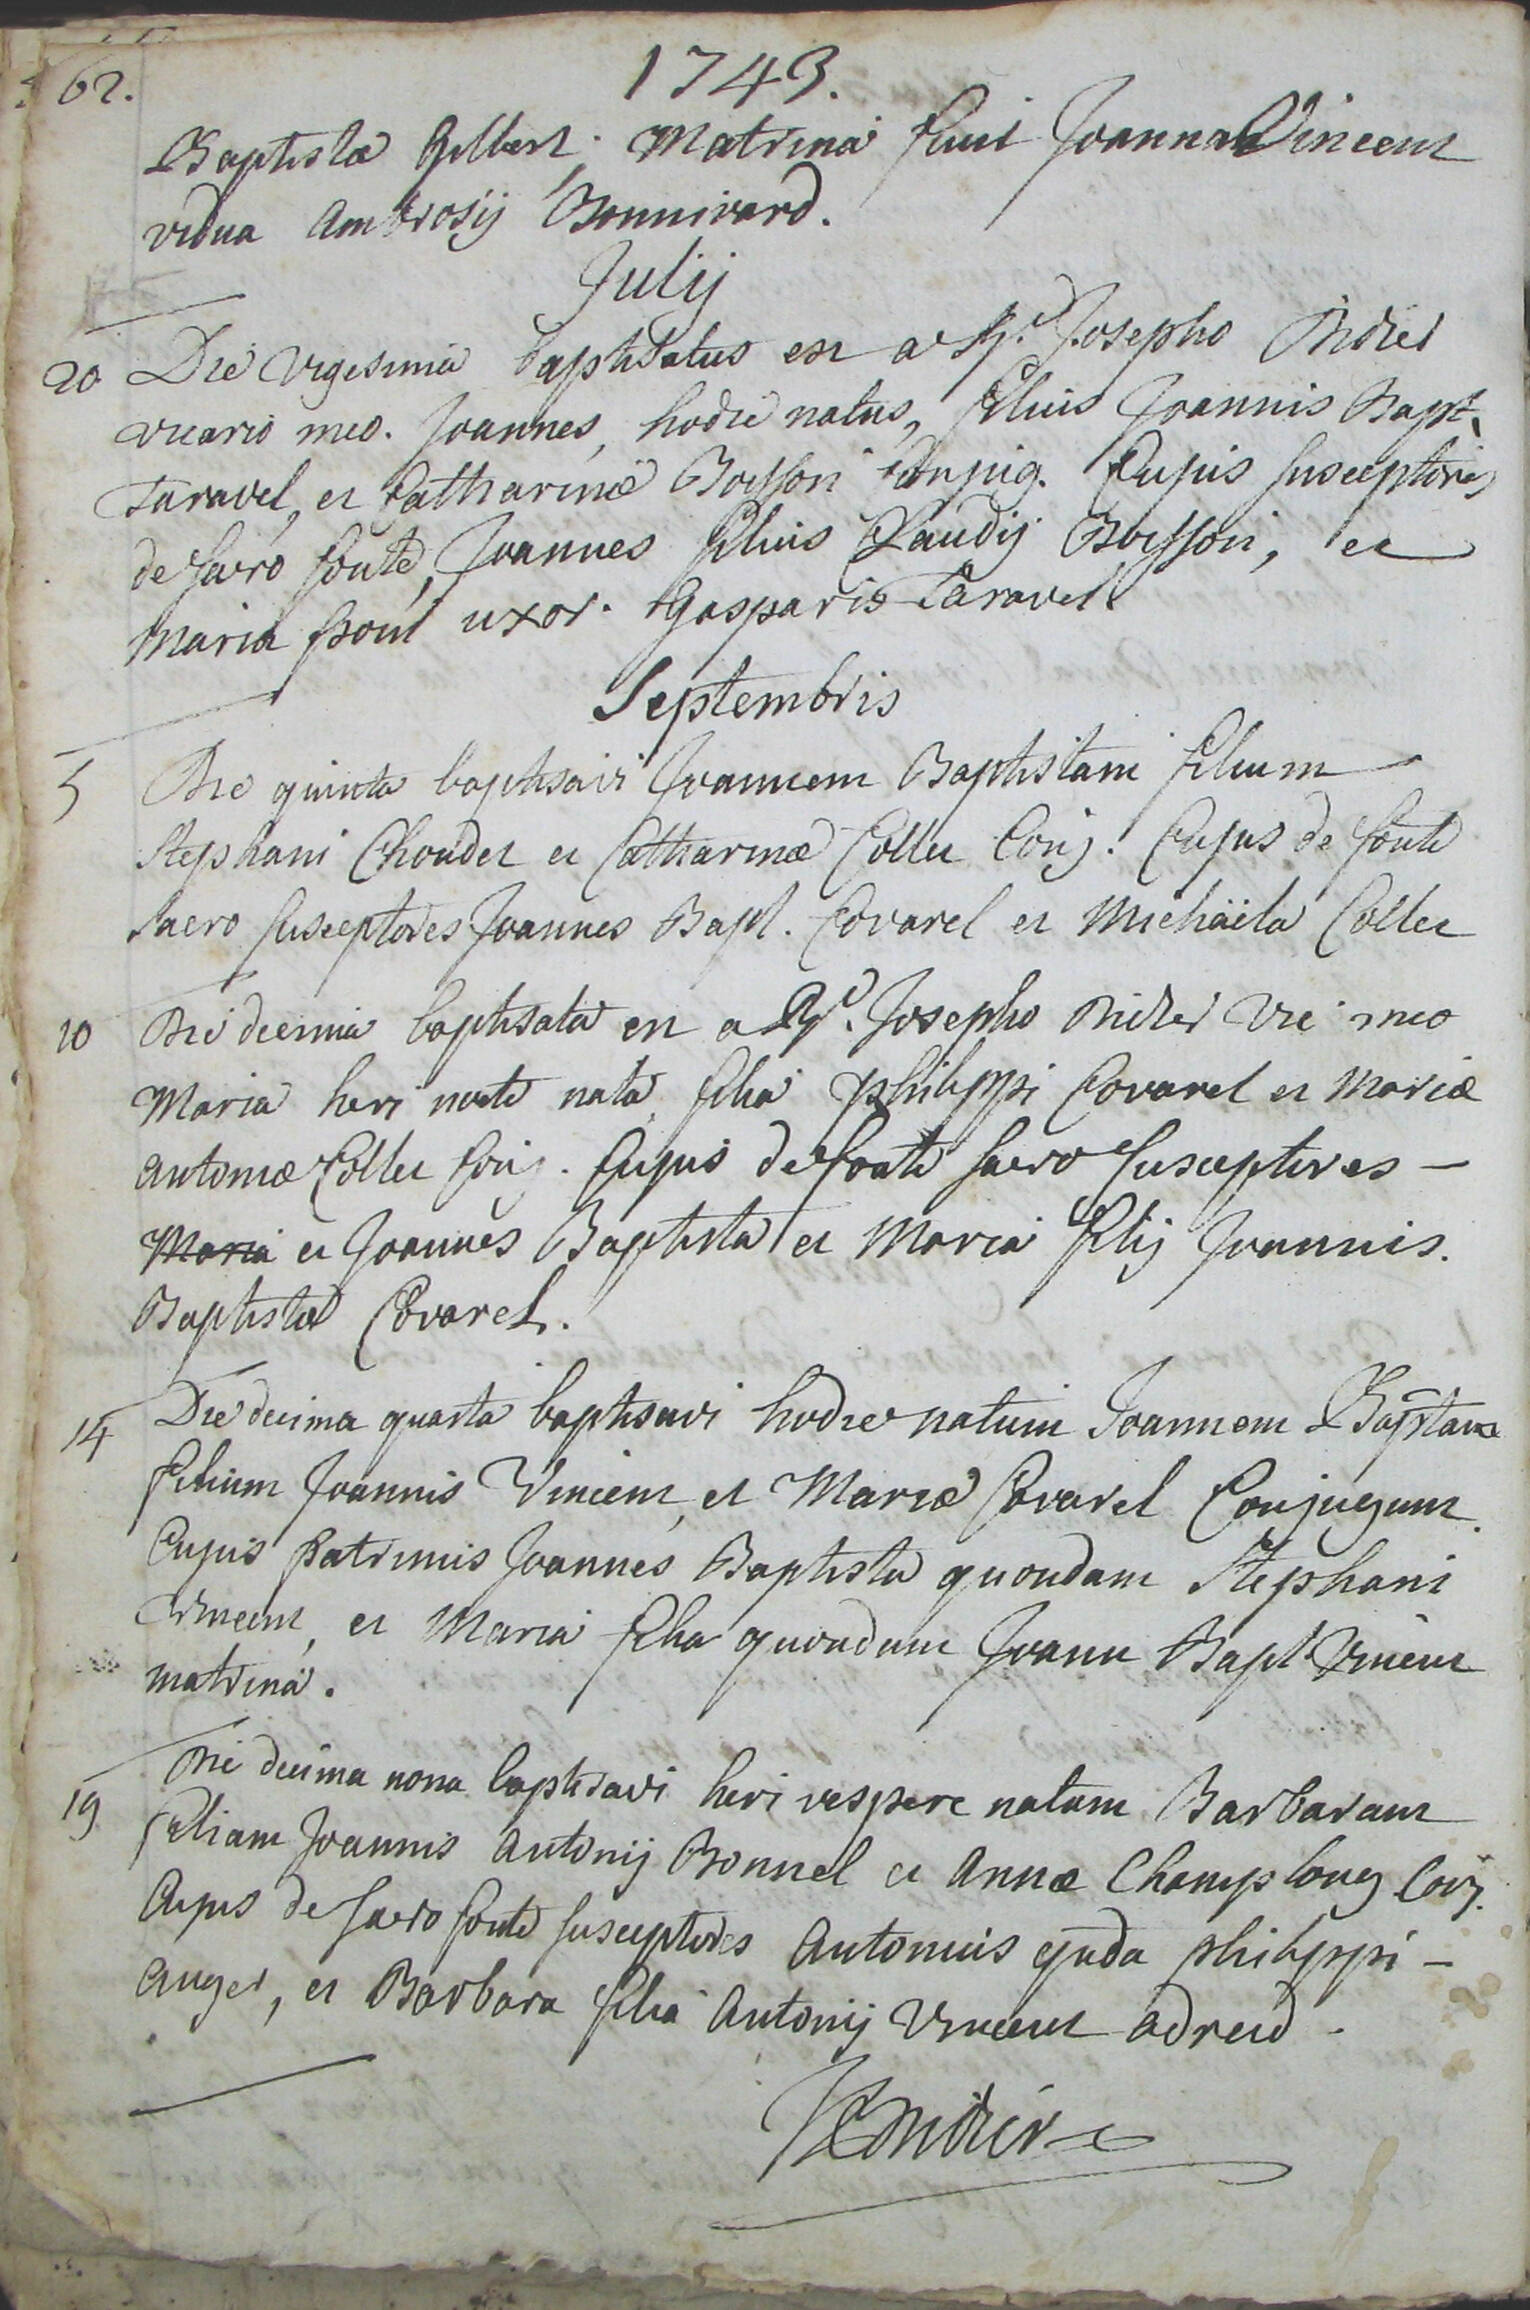 62.
1743.
Baptistæ Gilbert; Matrina fuit Joanna Vincent
vidua Ambrosij Bonnivard.
Julij
20 Die vigesima baptisatus est a Rd. Josepho Didier
vicario meo. Joannes, hodie natus, filius Joannis Bapt.
Taravel, et Catharinæ Boisson conjug. Cujus susceptores
de sacro fonte, Joannes filius Claudij Boisson, et
Maria uxor Gasparis Taravel
Septembris
5 Die quinta baptisavi Joannem Baptistam filium
Stephani Choudet et Catharinæ Collet Conj. Cujus de fonte
sacro susceptores Joannes Bapt. Covarel et Michäela Collet
10 Die decima baptisata est a Rd. Josepho Didier Vic meo
Maria heri nocte nata filia philippi Covarel et Mariæ
Antoniæ Collet Conj. Cujus de fonte sacro susceptores –
Maria et Joannes Baptista et Maria filij Joannis
Baptistæ Covarel.
14 Die decima quarta baptisavi hodie natum Joannem Baptstam
filium Joannis Vincent, et Mariæ Covarel Conjugum.
Cujus Patrinus Joannes Baptista quondam Stephani
Vincent, et Maria filia quondam Joann Bapt Vincent
matrina.
19 Die decima nona baptisavi heri vespere natam Barbaram
filiam Joannis Antonij Bonnel et Annæ Champlong Conj.
Cujus de sacro fonte susceptores Antonius qnda philippi –
Auger, et Barbara filia Antonij Vincent